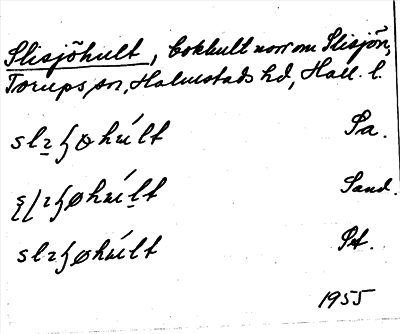 Slisjöhult, bokhult norr om Slisjön,
Torups sn, Halmstads hd, Hall. l.
slɿʃɵhúlt Sa.
ʂlɿʃøhúlt Sand.
slɿʃøhúlt Pt.
1955